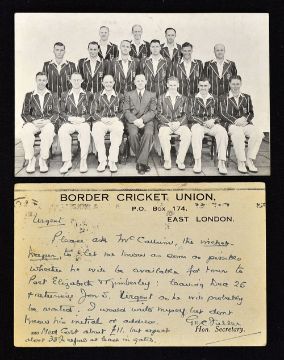 BORDER CRICKET UNION,
P.O. Box 174,
EAST LONDON.
Urgent
Please ask McCallum, the cricket
keeper to let me know as soon as possible
whether he will be available for tour to
Port Elizabeth Kimberley: leaving Dec 26
Jan 5. Urgent as he will probably
be wanted. I would write myself but dont
know his initials or address.
Hon. Secretary.
Cost about £11. but expect
about 33% refund at least in gates.